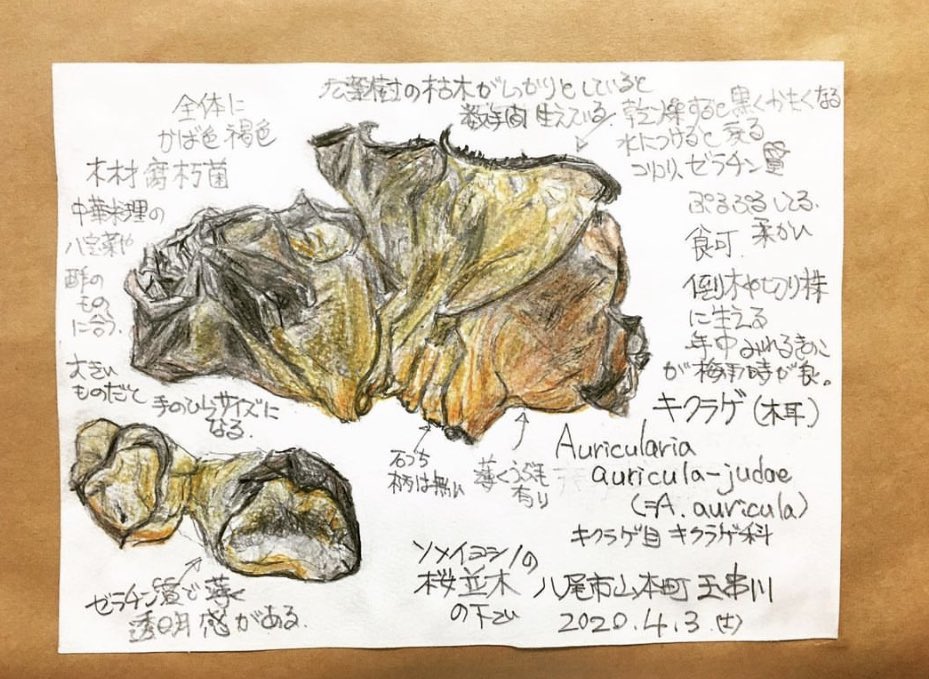 全体に
かば色 褐色
木材腐朽菌
中華料理の
八宝菜や
酢の
もの
に合う.
大きい
ものだと
手のひらサイズに
なる.
広葉樹の枯木がしっかりとしていると
数年間 生えている.
乾燥すると黒くかたくなる
水につけると戻る
コリコリ、ゼラチン質
ぷるぷるしてる.
食可. 柔かい
倒木や切り株
に生える
年中みれるきのこ
が梅雨時が良。
キクラゲ (木耳)
Auricularia
auricula-judae
(=A. auricula)
キクラゲ目 キクラゲ科
石づち
柄は無い
薄くうぶ毛
有り
ゼラチン質で薄く
透明感がある.
ソメイヨシノの
桜並木
の下で
八尾市山本町 玉串川
2020.4.3 (土)